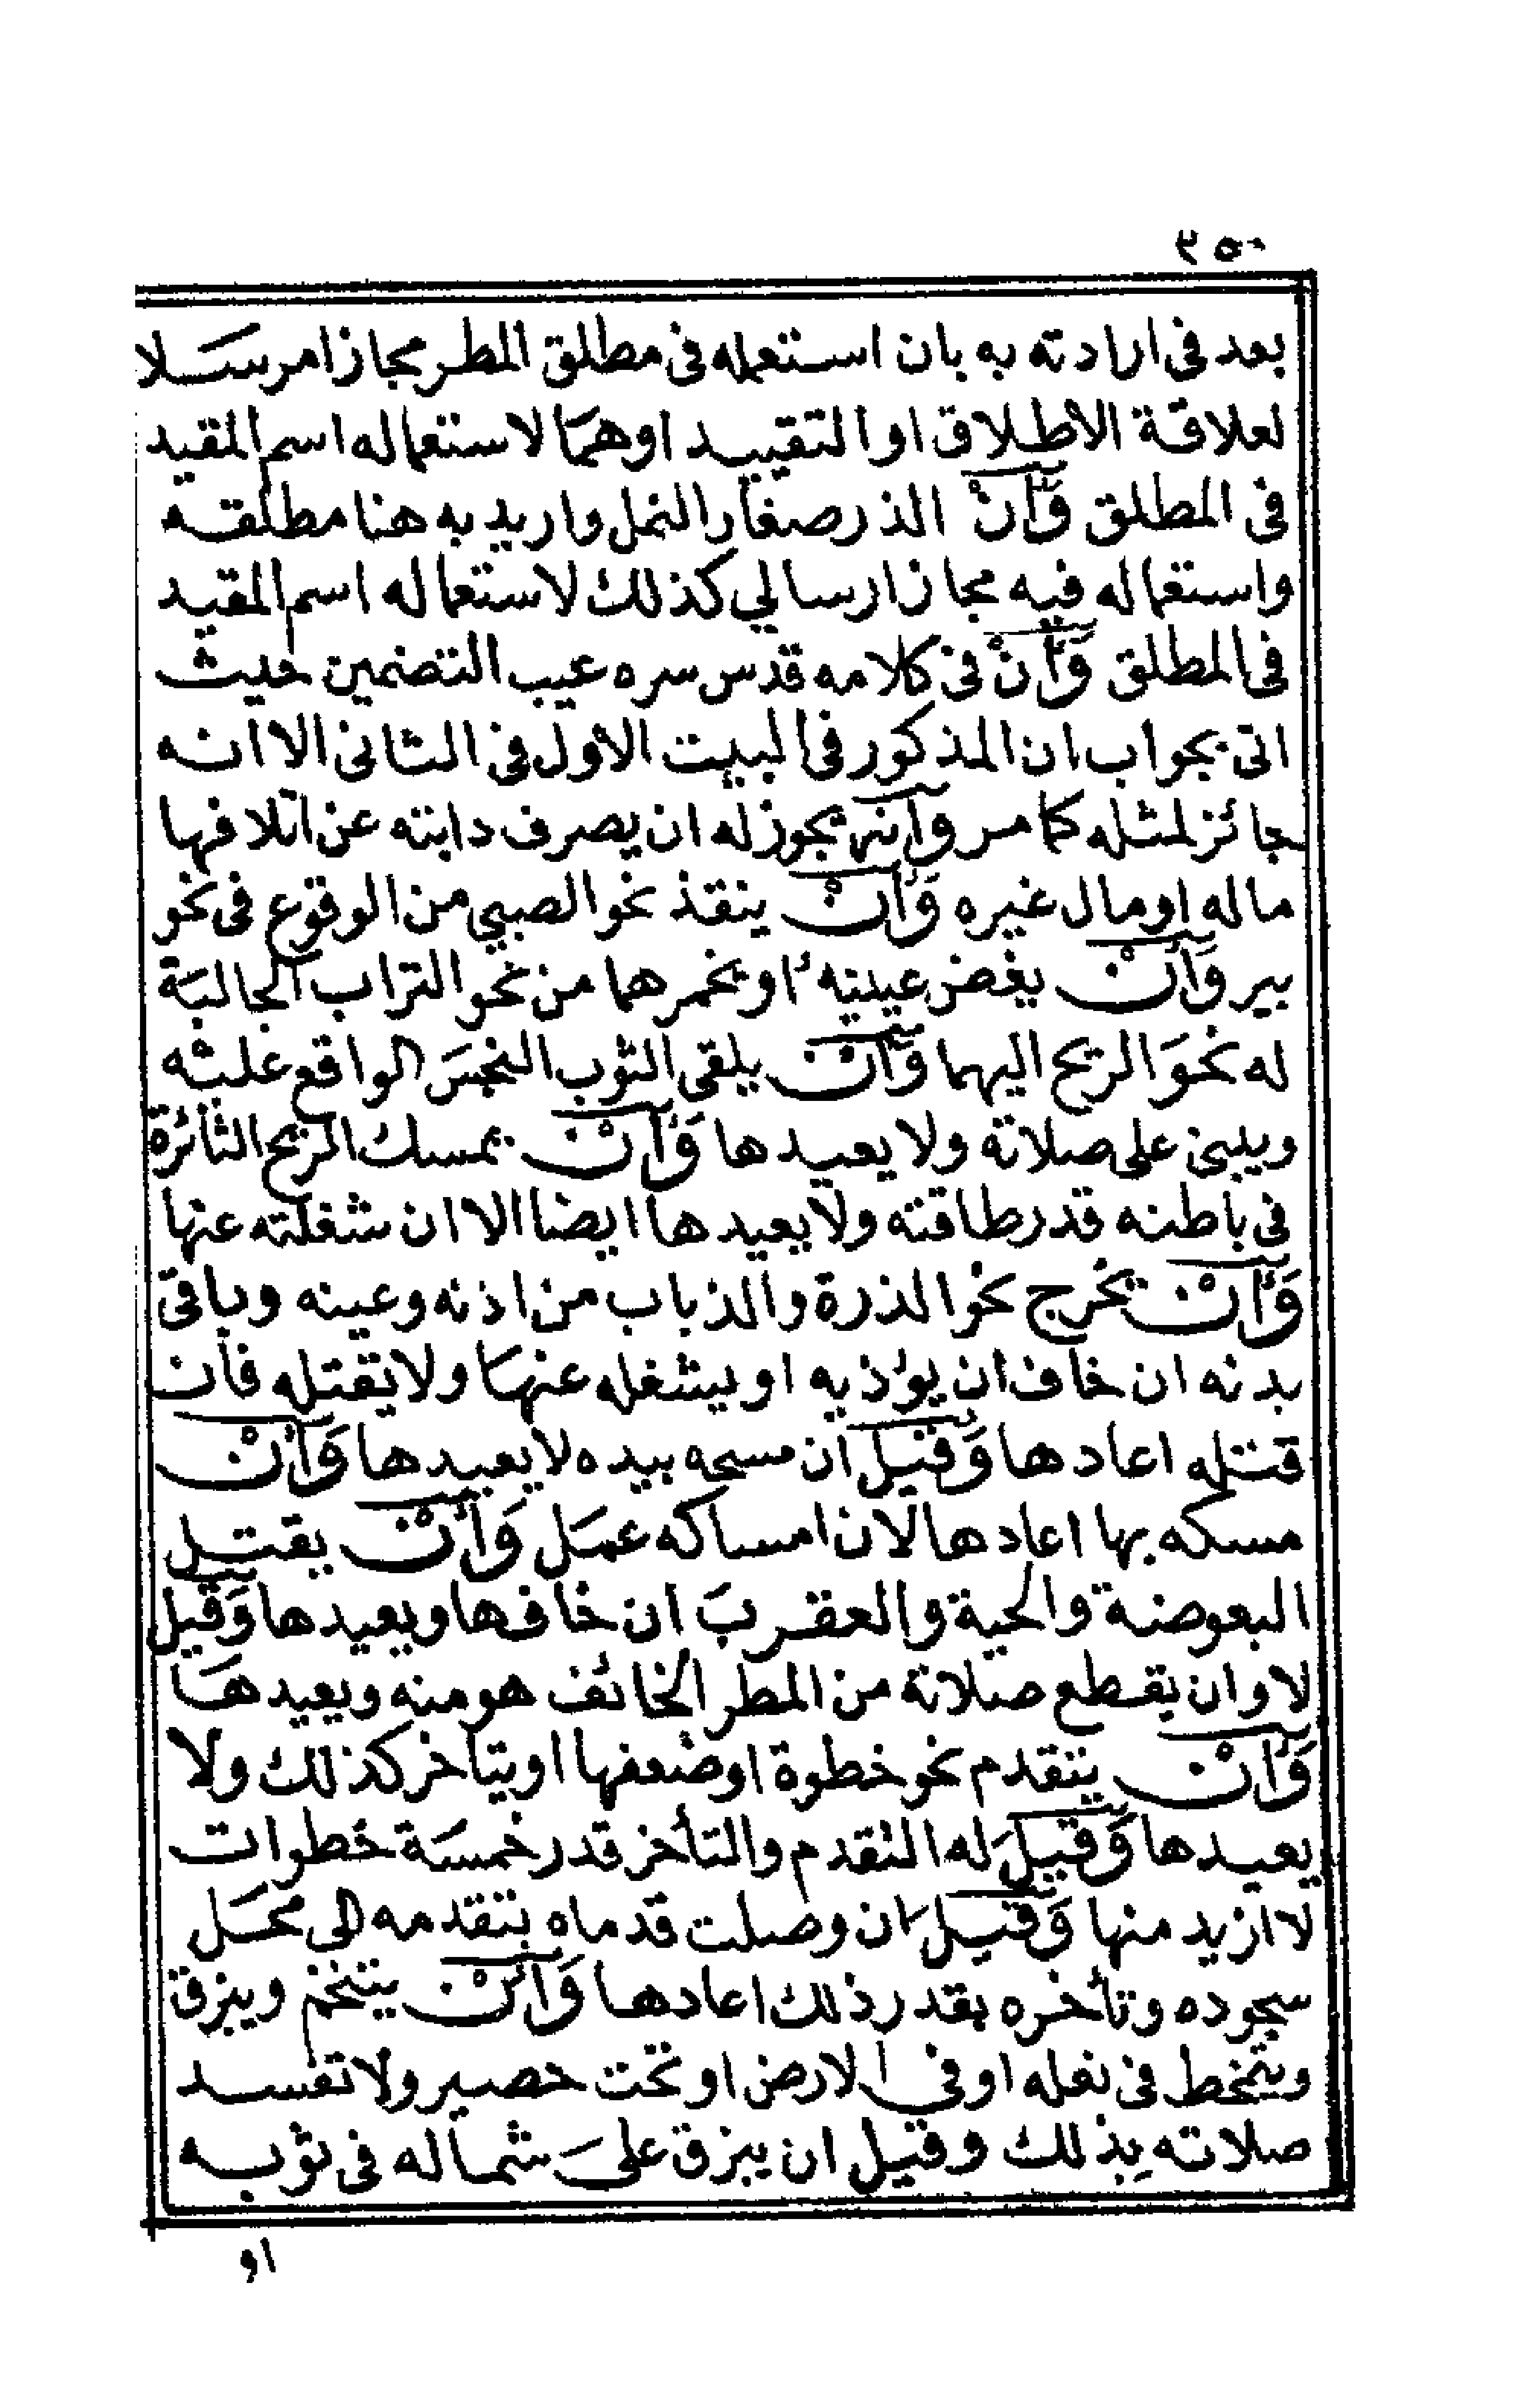 ٣٥٠
بعد في ارادته به بان استعمله في مطلق المطر مجازا مرسلا
لعلاقة الاطلاق او التقييد اوهما لاستعماله اسم المقيد
في المطلق وَأنْ الذر صغار النمل واريد به هنا مطلقه
واستعماله فيه مجاز ارسالي كذلك لاستعماله اسم المقيد
في المطلق وَأنْ في كلامه قدس سره عيب التضمين حيث
اتى بجواب ان المذكور في البيت الأول في الثاني الا انه
جائز لمثله كما مر وأنه يجوز له ان يصرف دابته عن اتلافها
ماله او مال غيره وَأنْ ينقذ نحو الصبي من الوقوع في نحو
بير وَأنْ يغض عينيه او يخمرهما من نحو التراب الجالبة
له نحوَ الريح اليهما وَأنْ يلقي الثوب النجسَ الواقع عليْه
ويبني على صلاته ولا يعيدها وَأنْ يمسك الريح الثائرة
في باطنه قدر طاقته ولا يعيدها ايضا الا ان شغلته عنها
وَأنْ يخرج نحو الذرة والذباب من اذنه وعينه وباقي
بدنه ان خاف ان يؤذيه او يشغله عنهَا ولا يقتله فان
قتله اعادها وَقيل ان مسحه بيده لا يعيدها وَأنْ
مسكه بها اعادها لان امساكه عمَل وَأنْ يقتل
البعوضة والحية والعقربَ ان خافها ويعيدها وَقيل
لا وان يقطع صلاته من المطر الخائف هو منه ويعيدهَا
وَأنْ يتقدم نحو خطوة او ضعفها او يتاخر كذلك ولا
يعيدها وَقيلَ له التقدم والتأخر قدر خمسَة خطوات
لا ازيد منها وَقيلَ ان وصلت قدماه بتقدمه الى محَل
سجوده وتأخره بقدر ذلك اعادها وَأنْ يتنخم ويبزق
ويتمخط في نعله او في الارض او تحت حصير ولا تفسد
صلاته بذلك وقيل ان يبزق علىَ شماله في ثوبه
او